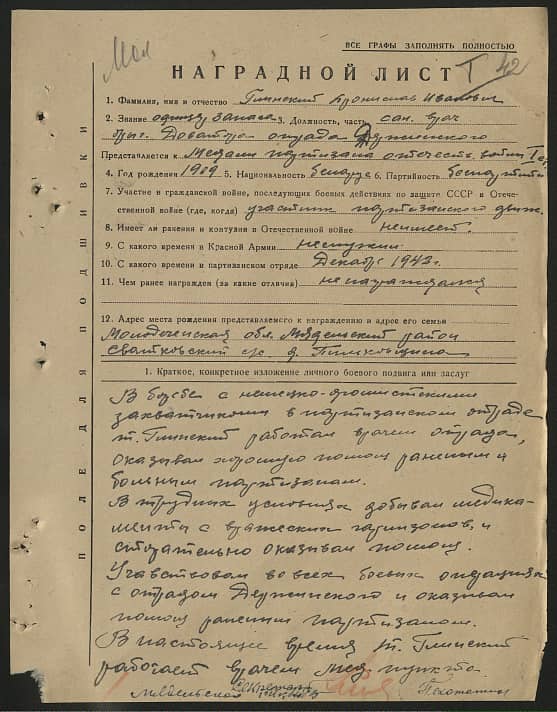 Мол
ВСЕ ГРАФЫ ЗАПОЛНЯТЬ ПОЛНОСТЬЮ
НАГРАДНОЙ ЛИСТ
42
1. Фамилия, имя и отчество Глинский Бронислав Иванович
2. Звание одиццу запаса 3. Должность, часть сан. врач
бриг. Доватора отряда Держинского
Представляется к Медали партизана отечеств. войны
4. Год рождения 1909 5. Национальность беларус 6. Партийность
7. Участие в гражданской войне, последующих боевых действиях по защите СССР и Отече-
ственной войне (где, когда) участник партизанского движ.
8. Имеет ли ранения и контузии в Отечественной войне неимеет.
9. С какого времени в Красной Армии неслужил
10. С какого времени в партизанском отряде Декабрь 1942 г.
11. Чем ранее награжден (за какие отличия) ненаграждался
12. Адрес места рождения представляемого к награждению и адрес его семьи
Молодеченская обл. Мядельский район
Сватковский с/с. д.
1. Краткое, конкретное изложение личного боевого подвига или заслуг
В борьбе с немецко-фашистскими
захватчиками в партизанском отряде
т. Глинский работал врачем отряда,
оказывал хорошую помощ раненым и
больным партизанам.
В трудных условиях добывал медика-
менты с вражеских гарнизонов, и
старательно оказывал помощ.
Учавствовал во всех боевых операциях
с отрядом Держинского и оказывал
помощ раненым партизанам.
В настоящие время т. Глинский
работает врачем мед. пункта.
Секретарь
ПОЛЕ ДЛЯ ПОДШИВКИ